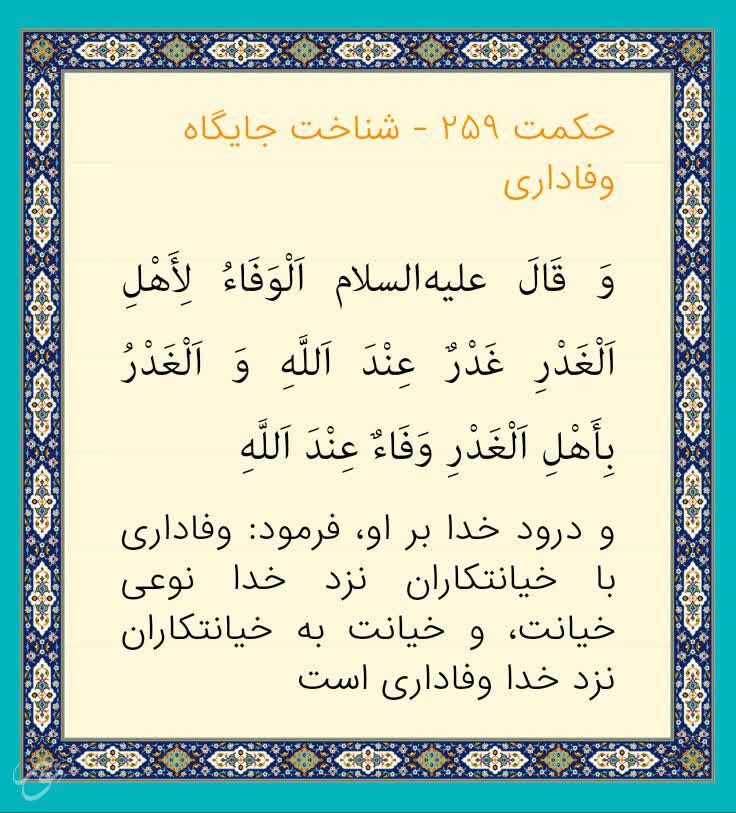 حکمت ۲۵۹ - شناخت جایگاه
وفاداری
وَ قَالَ علیه‌السلام اَلْوَفَاءُ لِأَهْلِ
اَلْغَدْرِ غَدْرٌ عِنْدَ اَللَّهِ وَ اَلْغَدْرُ
بِأَهْلِ اَلْغَدْرِ وَفَاءٌ عِنْدَ اَللَّهِ
و درود خدا بر او، فرمود: وفاداری
با خیانتکاران نزد خدا نوعی
خیانت، و خیانت به خیانتکاران
نزد خدا وفاداری است